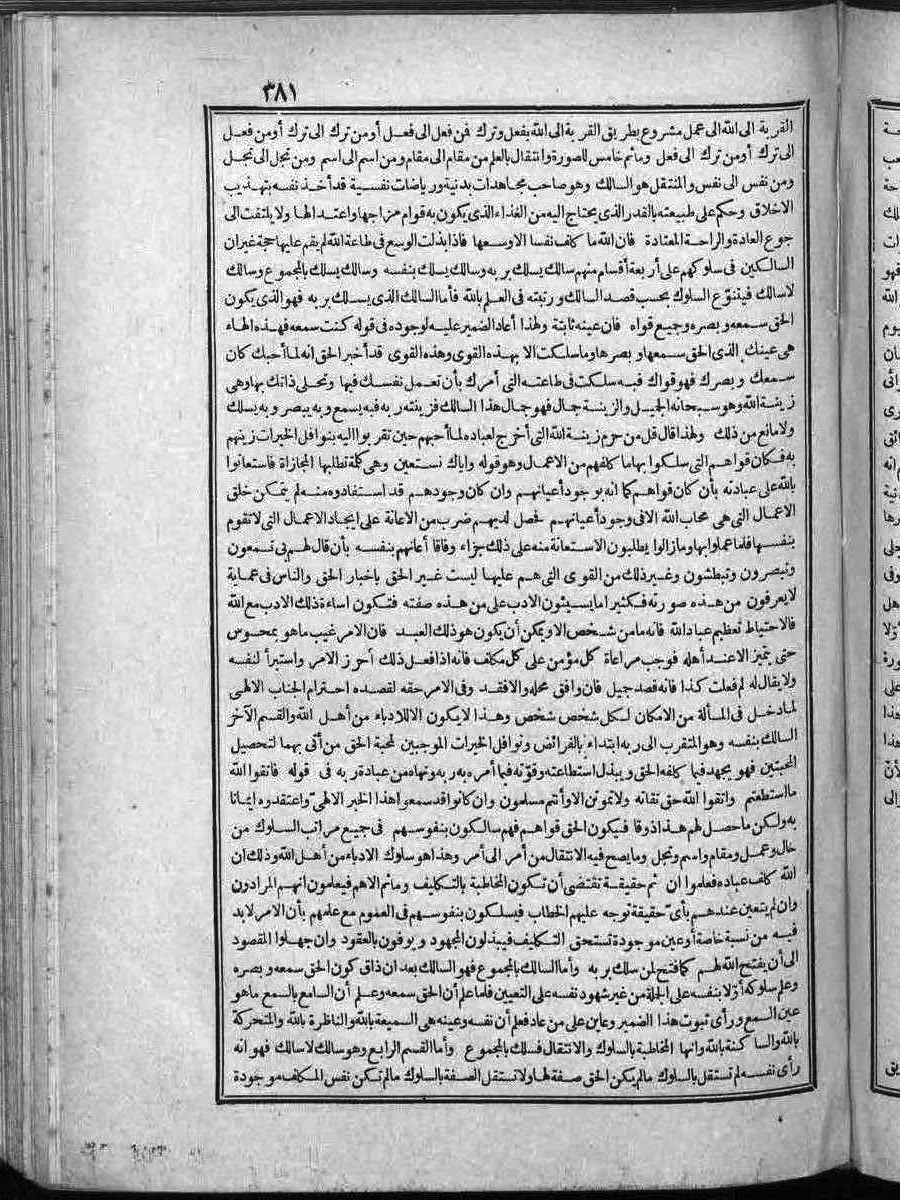 ٣٨١
القربة الى الله الى عمل مشروع بطريق القربة الى الله بفعل وترك فن فعل الى فعل أومن ترك الى ترك أومن فعل
الى ترك أومن ترك الى فعل ومائم خامس للصورة وانتقال بالعلم من مقام الى مقام ومن اسم الى اسم ومن تجل الى تجل
ومن نفس الى نفس والمنتقل هو السالك وهو صاحب مجاهدات بدنية ورياضات نفسية قد أخذ نفسه بتهذيب
الاخلاق وحكم على طبيعته بالقدر الذى يحتاج اليه من الغذاء الذى يكون به قوام مزاجها واعتدالها ولا يلتفت الى
جوع العادة والراحة المعتادة فان الله ما كلف نفسا الا وسعها فاذا بذلت الوسع فى طاعة الله لم يقم عليها حجة غيران
السالكين فى سلوكهم على أربعة أقسام منهم سالك يسلك بربه وسالك يسلك بنفسه وسالك يسلك بالمجموع وسالك
لا سالك فيتنوّع السلوك بحسب قصد السالك ورتبته فى العلم بالله فأما السالك الذى يسلك بربه فهو الذى يكون
الحق سمعه وبصره وجميع قواه فان عينه ثابتة ولهذا أعاد الضمير عليه لوجوده فى قوله كنت سمعه فهذه الهاء
هى عينك الذى الحق سمعها وبصرها وما سلكت الا بهذه القوى وهذه القوى قد أخبر الحق انه لما أحبك كان
سمعك وبصرك فهو قواك فبه سلكت فى طاعته التى أمرك بأن تعمل نفسك فيها وتحلى ذاتك بها وهى
زينة الله وهو سبحانه الجميل والزينة جمال فهو جمال هذا السالك فزينته ربه فبه يسمع وبه يبصر وبه يسلك
ولا مانع من ذلك ولهذا قال قل من حرم زينة الله التى أخرج لعباده لما أحبهم حين تقربوا اليه بنوافل الخيرات زينهم
به فكان قواهم التى سلكوا بها ما كلفهم من الاعمال وهو قوله واياك نستعين وهى كلمة تطلبها المجازاة فاستعانوا
بالله على عبادته بأن كان قواهم كما انه بوجود أعيانهم وان كان وجودهم قد استفادوه منه لم يتمكن خلق
الاعمال التى هى محاب الله الا فى وجود أعيانهم فحصل لديهم ضرب من الاعانة على ايجاد الاعمال التى لا تقوم
بنفسها فلما عملوا بها وما زالوا يطلبون الاستعانة منه على ذلك جزاء وفاقا أعانهم بنفسه بأن قال لهم بى تسمعون
وتبصرون وتبطشون وغير ذلك من القوى التى هم عليها ليست غير الحق باخبار الحق والناس فى عماية
لا يعرفون من هذه صورته فكثيرا ما يسيئون الادب على من هذه صفته فتكون اساءة ذلك الادب مع الله
فالاحتياط تعظيم عباد الله فانه ما من شخص الا ويمكن أن يكون هو ذلك العبد فان الامر غيب ما هو بمحسوس
حتى يتميز الا عند أهله فوجب مراعاة كل مؤمن على كل مكلف فانه اذا فعل ذلك أحرز الامر واستبرأ لنفسه
ولا يقال له لم فعلت كذا فانه قصد جميل فان وافق محله والا فقد وفى الامر حقه لقصده احترام الجناب الالهى
لما دخل فى المسألة من الامكان لكل شخص شخص وهذا لا يكون الا للادباء من أهل الله والقسم الآخر
السالك بنفسه وهو المتقرب الى ربه ابتداء بالفرائض ونوافل الخيرات الموجبين لمحبة الحق من أتى بهما لتحصيل
المحبتين فهو يجهد فيما كلفه الحق ويبذل استطاعته وقوّته فيما أمره به ربه ونهاه من عبادة ربه فى قوله فاتقوا الله
ما استطعتم واتقوا الله حق تقاته ولا تموتن الا وأنتم مسلمون وان كانوا قد سمعوا هذا الخبر الالهىّ واعتقدوه ايمانا
به ولكن ما حصل لهم هذا ذوقا فيكون الحق قواهم فهم سالكون بنفوسهم فى جميع مراتب السلوك من
حال وعمل ومقام واسم وتجل وما يصح فيه الانتقال من أمر الى أمر وهذا هو سلوك الادباء من أهل الله وذلك ان
الله كلف عباده فعلموا ان ثم حقيقة تقتضى أن تكون المخاطبة بالتكليف وما ثم الا هم فيعلمون انهم المرادون
وان لم يتعين عندهم بأىّ حقيقة توجه عليهم الخطاب فيسلكون بنفوسهم فى العموم مع علمهم بأن الامر لا بد
فيه من نسبة خاصة أو عين موجودة تستحق التكليف فيبذلون المجهود ويوفون بالعقود وان جهلوا المقصود
الى أن يفتح الله لهم كما فتح لمن سلك بربه وأما السالك بالمجموع فهو السالك بعد ان ذاق كون الحق سمعه وبصره
وعلم سلوكه أوّلا بنفسه على الجملة من غير شهود نفسه على التعيين فلما علم أن الحق سمعه وعلم أن السامع بالسمع ما هو
عين السمع ورأى ثبوت هذا الضمير وعاين على من عاد فعلم أن نفسه وعينه هى السميعة بالله والناظرة بالله والمتحركة
بالله والساكنة بالله وانها المخاطبة بالسلوك والانتقال فسلك بالمجموع وأما القسم الرابع وهو سالك لا سالك فهو انه
رأى نفسه لم تستقل بالسلوك ما لم يكن الحق صفة لها ولا تستقل الصفة بالسلوك ما لم تكن نفس المكلف موجودة